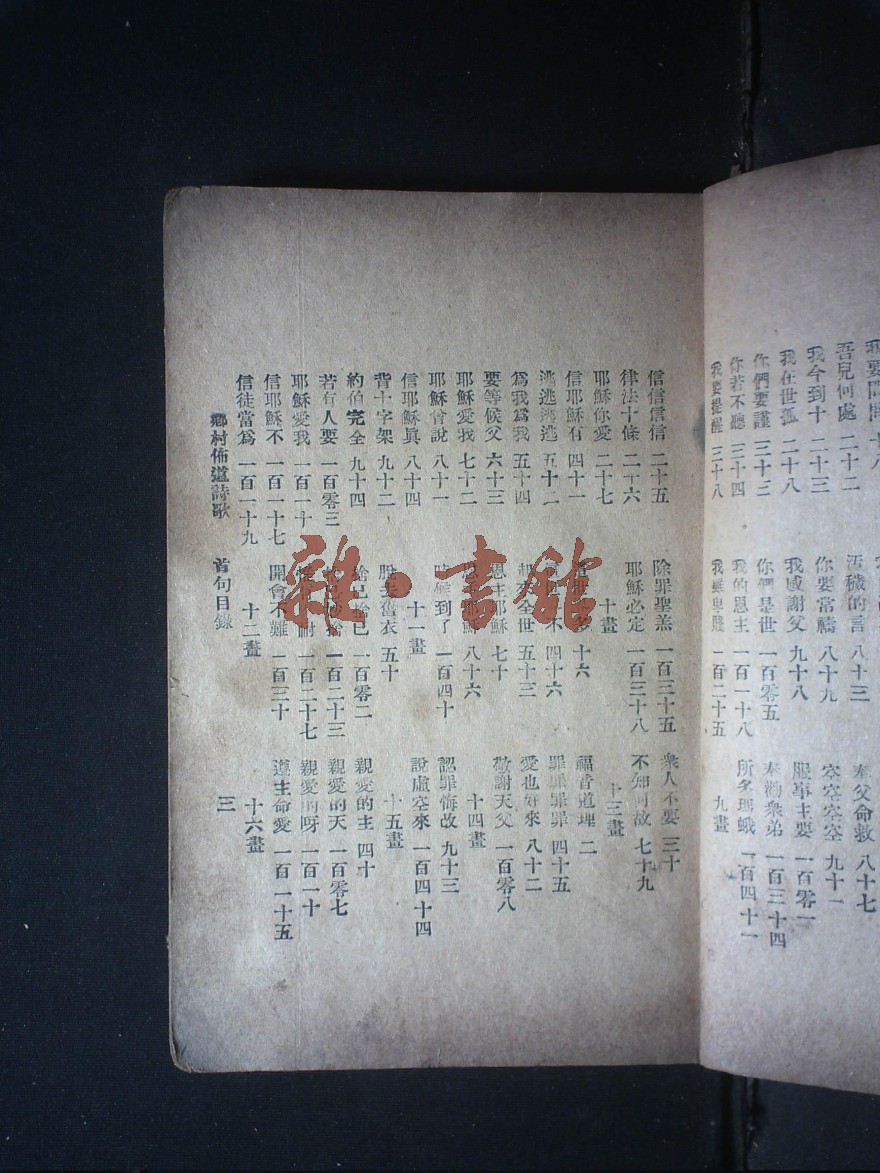 吾兒何處 二十二
我今到十 二十三
我在世孤 二十八
你們要謹 三十三
你若不聽 三十四
我要提醒 三十八
汚穢的言 八十三
你要當禱 八十九
我感謝父 九十八
你們是世 一百零五
我的恩主 一百一十八
一百二十五
奉父命救 八十七
空空空空 九十一
服事主要 一百零一
奉勸衆弟 一百三十四
所多瑪蛾 一百四十一
九畫
信信信信 二十五
律法十條 二十六
耶穌你愛 二十七
信耶穌有 四十一
逃逃逃逃 五十二
爲我爲我 五十四
要等候父 六十三
耶穌愛我 七十二
耶穌曾說 八十一
信耶穌眞 八十四
背十字架 九十二
約伯完全 九十四
若有人要 一百零三
耶穌愛我 一百一十
信耶穌不 一百一十七
信徒當爲 一百一十九
除罪聖羔 一百三十五
耶穌必定 一百三十八
十畫
十六
四十六
五十三
恩主耶穌 七十
八十六
十一畫
到了 一百四十
脫去舊衣 五十
捨己捨己 一百零二
一百二十三
一百二十七
十二畫
開會不難 一百三十
衆人不要 三十
不知何故 七十九
十三畫
福音道理 二
罪罪罪罪 四十五
愛也好來 八十二
敬謝天父 一百零八
十四畫
認罪悔改 九十三
說虛空來 一百四十四
十五畫
親愛的主 四十
親愛的天 一百零七
親愛的呀 一百一十
遵主命愛 一百一十五
十六畫
鄉村佈道詩歌 首句目錄 三
雜·書館